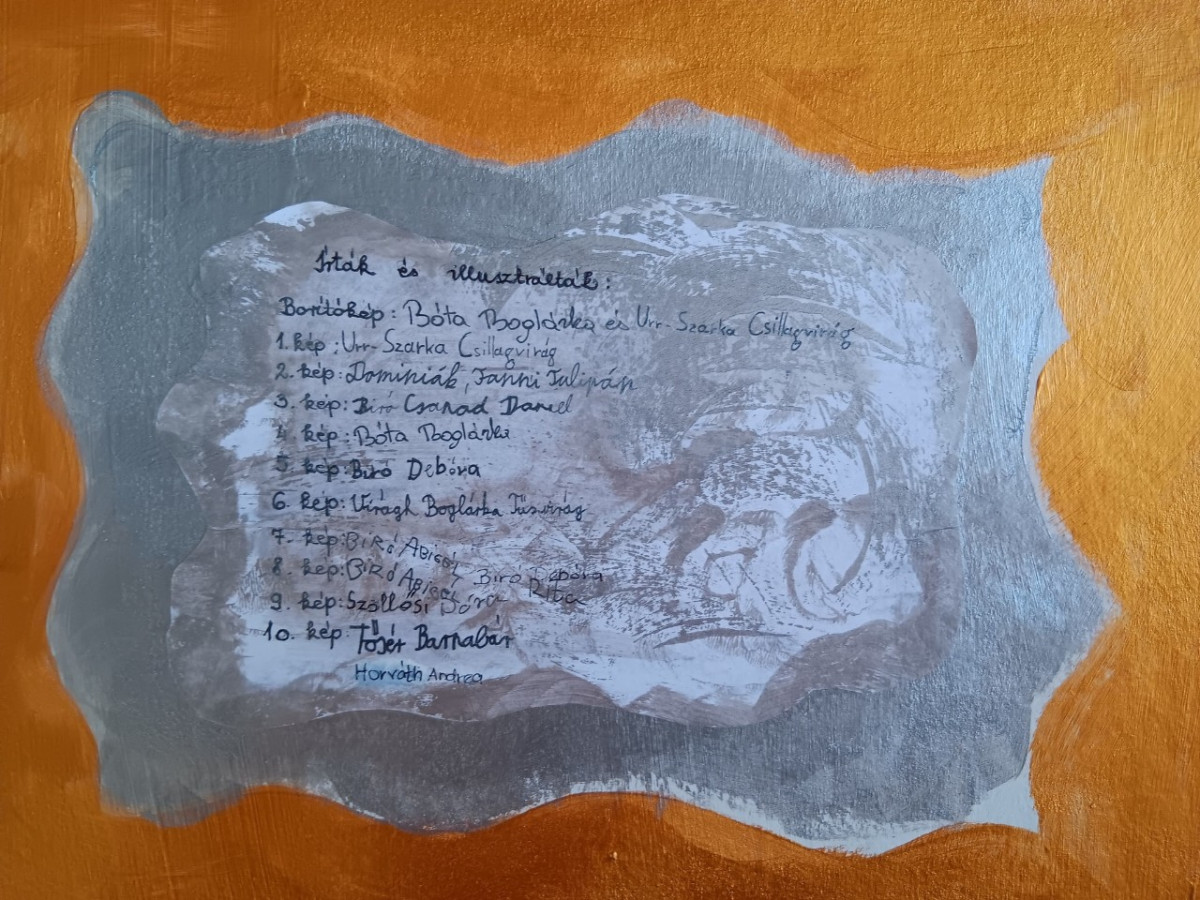 Írták és illusztrálták:
Borítókép: Bóta Boglárka és Urr-Szarka Csillagvirág
1. kép: Urr-Szarka Csillagvirág
2. kép: Dominiák, Fanni Tulipán
3. kép: Biró Csanád Dániel
4. kép: Bóta Boglárka
5. kép: Biró Debóra
6. kép: Virágh Boglárka Tűzvirág
7. kép: BiRó ABigél
8. kép: BiRó ABigél Biró Debóra
9. kép: Szöllősi Dóra Rita
10. kép: Tőzér Barnabás
Horváth Andrea